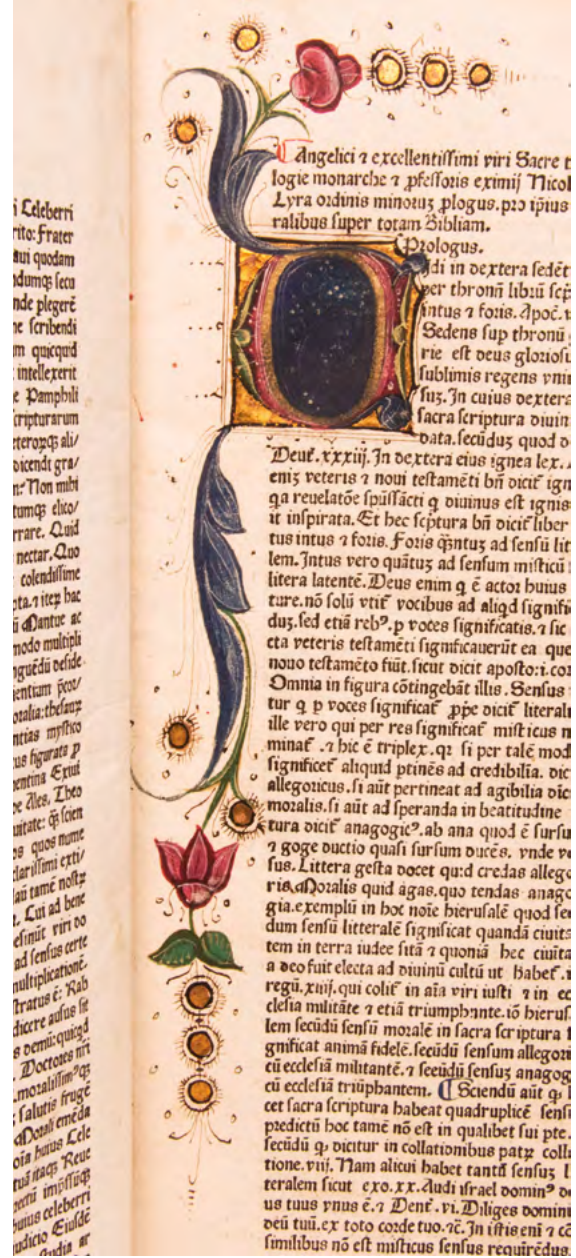 i Celeberri
rito: Frater
aui quodam
ndumqꝫ secu
nde plegerē
ne scribendi
m quicquid
intellexerit
e Pamphili
cripturarum
eteroꝝqꝫ ali/
dicendi gra/
n: Non mihi
tumqꝫ elico/
rrare. Quid
nectar. Quo
colendissime
pta. ⁊ iteꝝ hac
ū Mantue ac
modo multipli
nguēdū deside
ientium p̄coꝛ/
oralia: thesauꝝ
ntias mystico
us figurata p
entina Exiut
e Ales. Theo
uitate: q̄ꝫ scien
s quos nume
larissimi exti/
laū tamē nostꝝ
t. Cui ad bene
esinūt viri do
ad sensus certe
multiplicationē.
tratus ē: Rab
dicere ausus sit
s demū: quicq̄d
. Doctoꝛes nr̄i
. moꝛalissim⁹qꝫ
: salutis frugē
Moꝛali emēda
oīa huius Cele
tuā itaqꝫ Reue
huius celeberri
udicio Eiusdē
Angelici ⁊ excellentissimi viri Sacre t
logie monarche ⁊ ꝓfessoris eximij Nicol
Lyra ordinis minoꝝ ꝓlogus. pro ip̄ius
ralibus super totam Bibliam.
Prologus.
idi in dextera sedēt
per thronū librū scp̄
intus ⁊ foris. Apoc̄. v
Sedens sup thronū
rie est deus gloriosu
sublimis regens vniu
suꝫ. In cuius dextera
sacra scriptura diuin
data. secūduꝫ quod d
Deut̄. xxxiij. In dextera eius ignea lex. A
eniꝫ veteris ⁊ noui testamēti bn̄ dicit̄ ign
qa reuelatōe sp̄ussācti q diuinus est ignis
it inspirata. Et hec scp̄tura bn̄ dicit̄ liber
tus intus ⁊ foris. Foris q̄ntuꝫ ad sensū lit
lem. Intus vero quātuꝫ ad sensum misticū
litera latentē. Deus enim q ē actoꝛ huius
ture. nō solū vtit̄ vocibus ad aliqd signific
duꝫ. sed etiā reb⁹. p voces significatis. ⁊ sic
cta veteris testamēti significauerūt ea que
nouo testamēto fiūt. sicut dicit aposto: i. coꝛ
Omnia in figura cōtingebāt illis. Sensus
tur q p voces significat̄ ꝓpe dicit̄ literali
ille vero qui per res significat̄ misticus n
minat̄. ⁊ hic ē triplex. qꝛ si per talē mod
significet̄ aliquid ptinēs ad credibilia. dic
allegoricus. si aūt pertineat ad agibilia dic
moꝛalis. si aūt ad speranda in beatitudine
tura dicit̄ anagogic⁹. ab ana quod ē sursu
⁊ goge ductio quasi sursum ducēs. vnde ve
sus. Littera gesta docet quid credas allego
ria. Moꝛalis quid agas. quo tendas anago
gia. exemplū in hoc noīe hierusalē quod se
dum sensū litteralē significat quandā ciuita
tem in terra iudee sitā ⁊ quoniā hec ciuita
a deo fuit electa ad diuinū cultū ut habet̄. i
regū. xiiij. qui colit̄ in aīa viri iusti ⁊ in ec
clesia militāte ⁊ etiā triumphante. iō hierus
lem secūdū sensū moꝛalē in sacra scriptura
gnificat animā fidelē. secūdū sensum allegoꝛi
cū ecclesiā militantē. ⁊ secūdū sensuꝫ anagog
cū ecclesiā triūphantem. Sciendū aūt q̄
cet sacra scriptura habeat quadruplicē sensū
predictū hoc tamē nō est in qualibet sui pte.
secūdū q̄ dicitur in collationibus patꝝ collu
tione. viij. Nam alicui habet tantū sensuꝫ l
teralem sicut exo. xx. Audi israel domin⁹ de
us tuus vnus ē. ⁊ Deut̄. vi. Diliges dominū
deū tuū. ex toto coꝛde tuo. ⁊c̄. In istis eni ⁊ cō
similibus nō est misticus sensus requirēdus